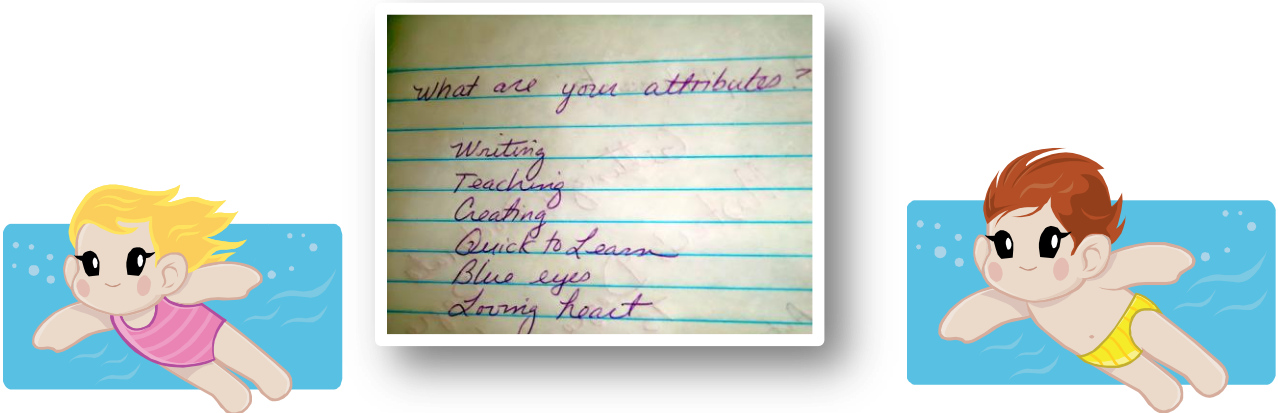 What are your attributes?
Writing
Teaching
Creating
Quick to Learn
Blue eyes
Loving heart